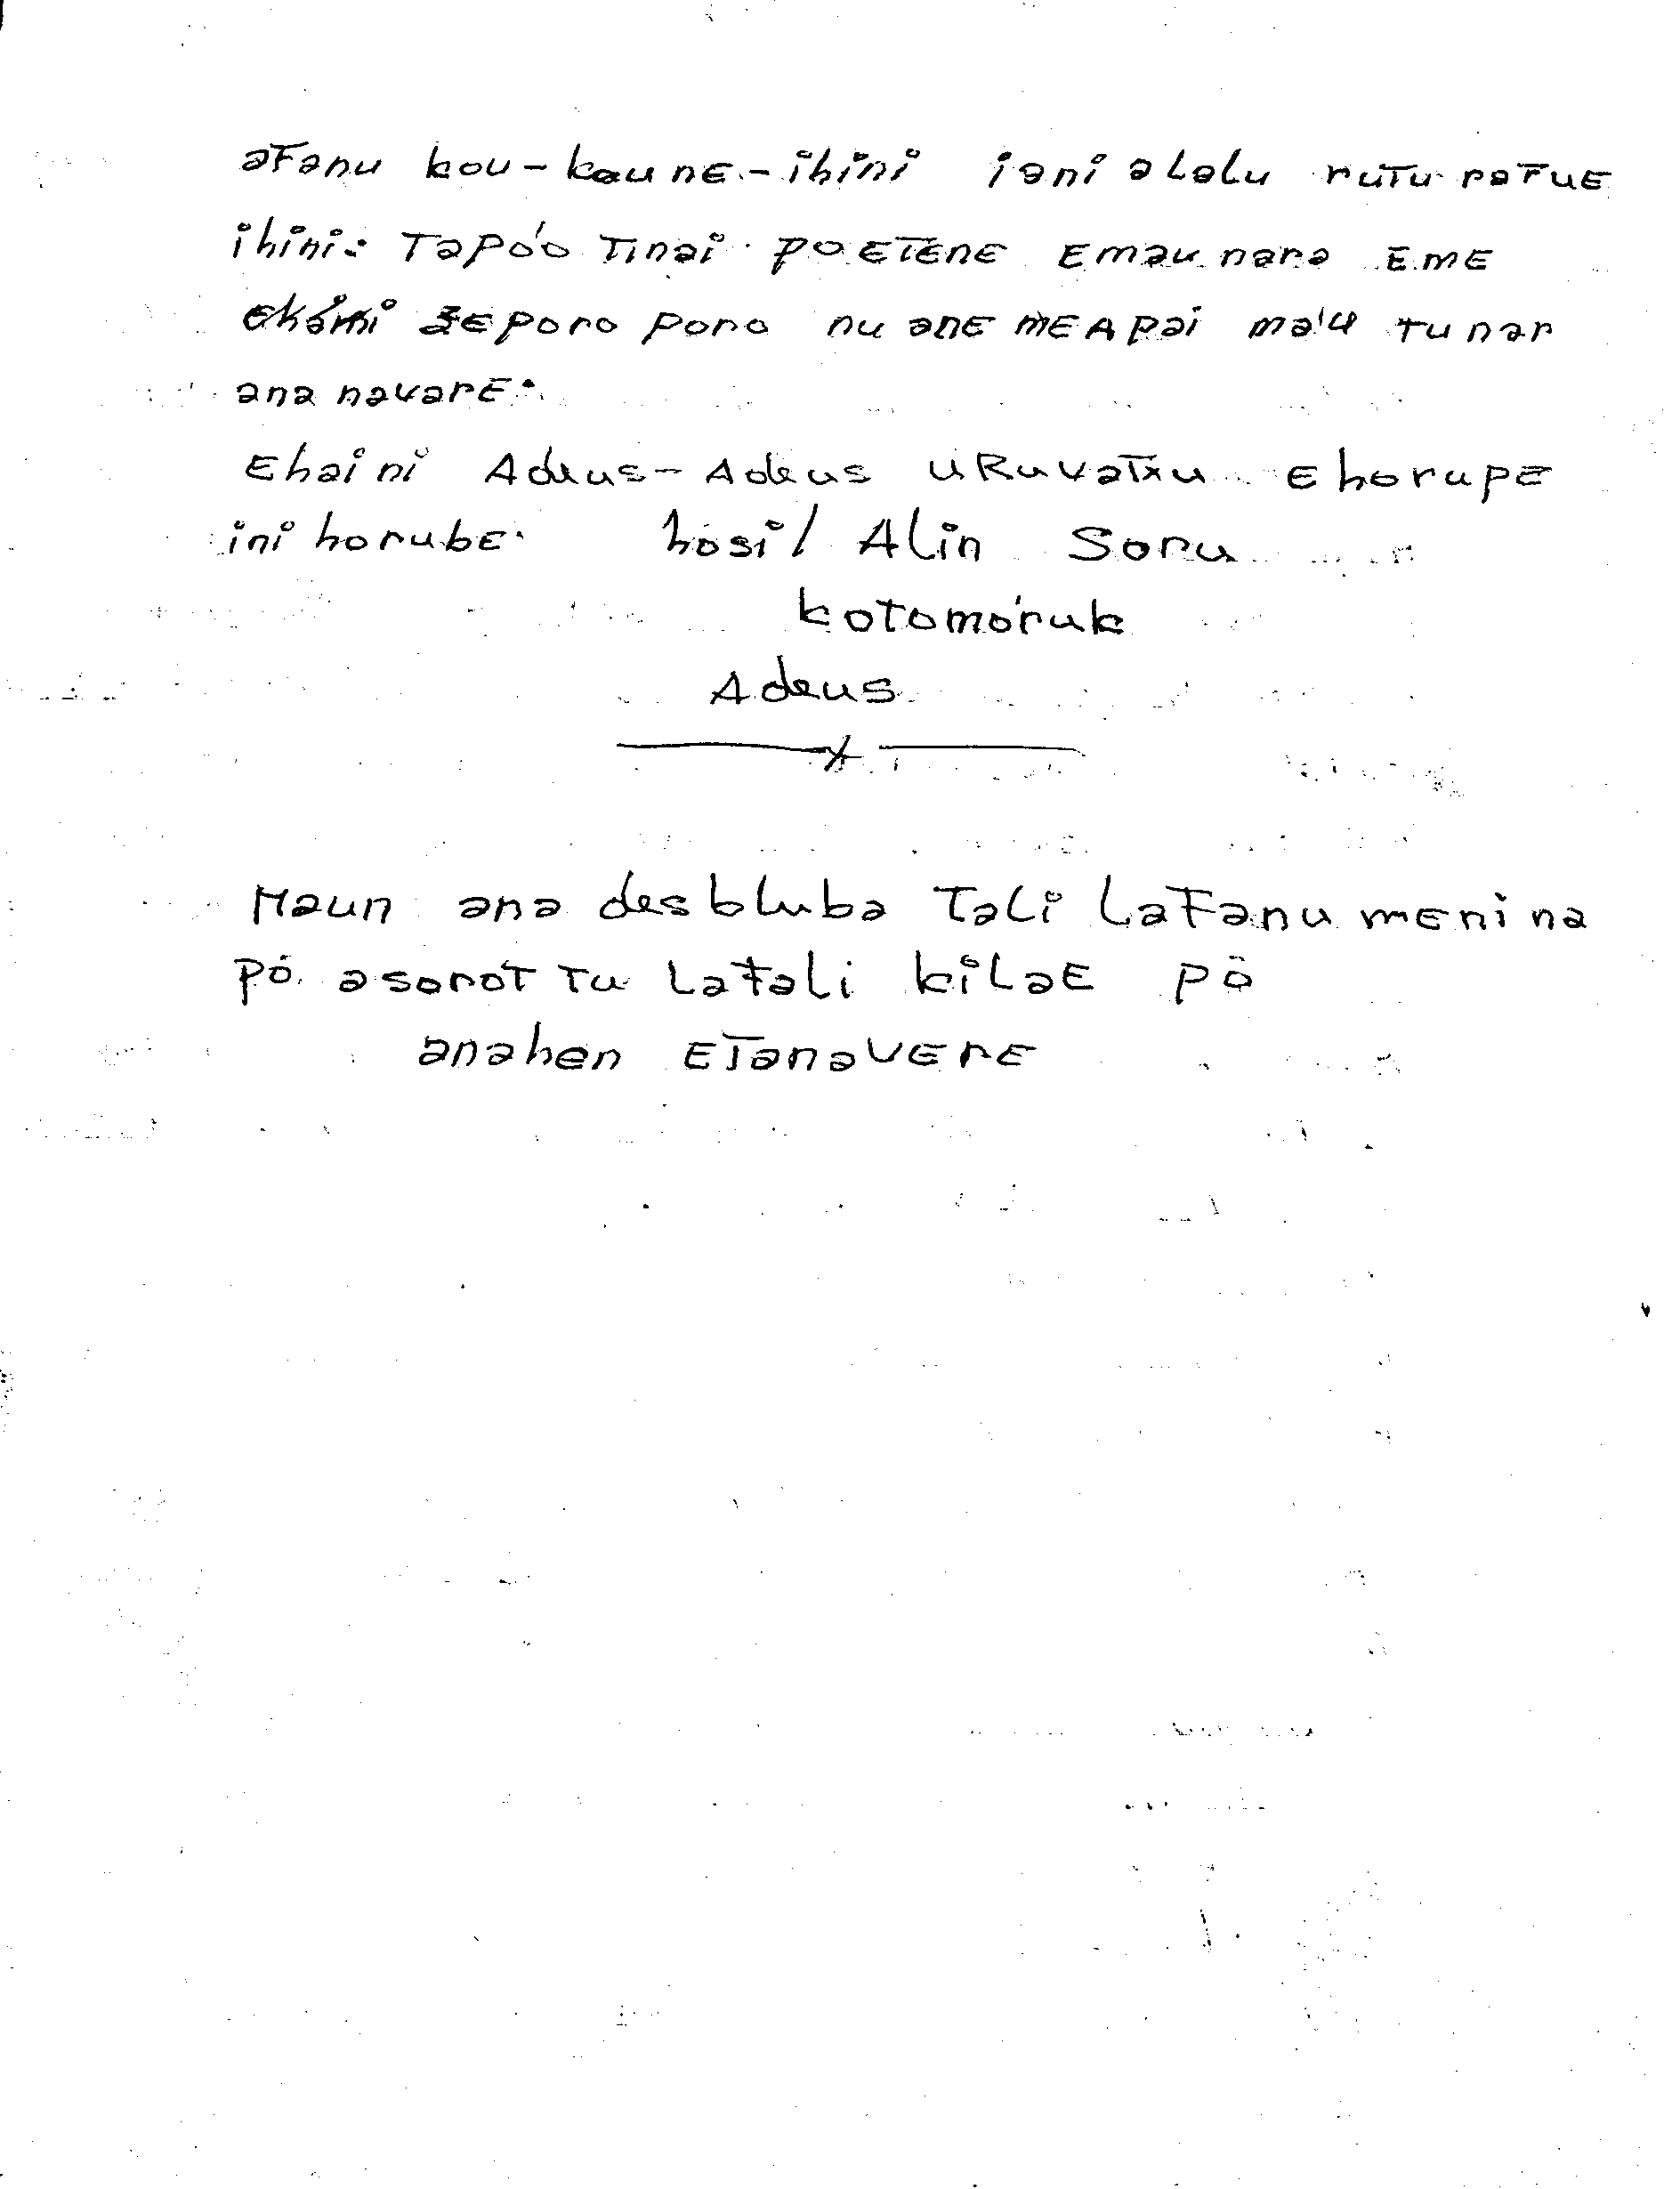 aFanu kou-kaune-ihini iani alalu rutu ratue
ihini: Tapóo Tinai poetene emau nara eme
poro poro nu ane me Apai ma'u tunar
ana navare.
Ehaini Adeus-Adeus uRuvatxu ehorupe
ini horube. hosi/ Alin Soru
kotomóruk
Adeus
Maun ana desbluba Tali laFanu menina
pó. asorot tu lafali kilae pó
anahen etanavere